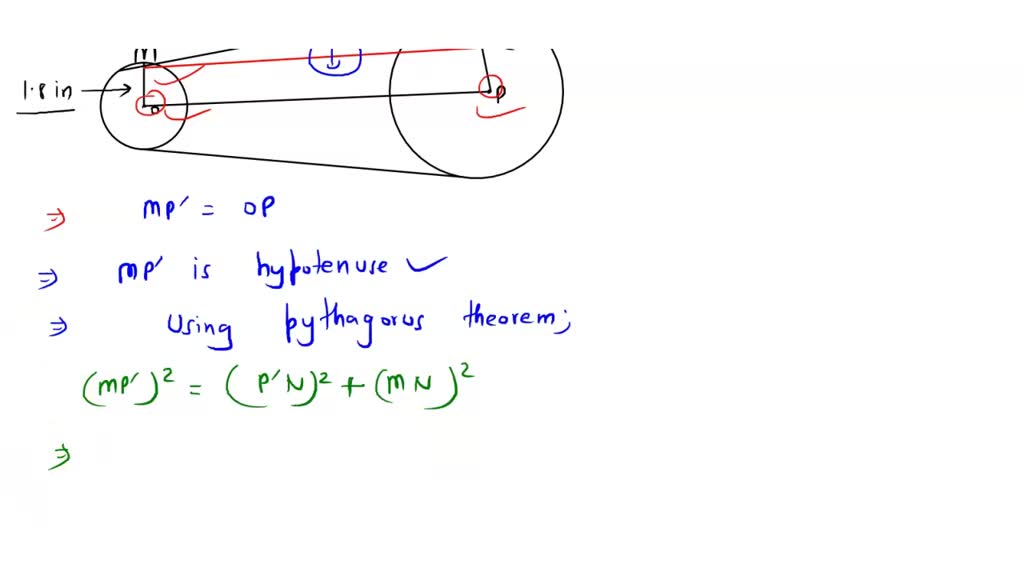 M
1.8 in
O
P
⇒ MP' = OP
⇒ MP' is hypotenuse ✓
⇒ Using pythagorus theorem;
(MP')² = (P'N)² + (MN)²
⇒